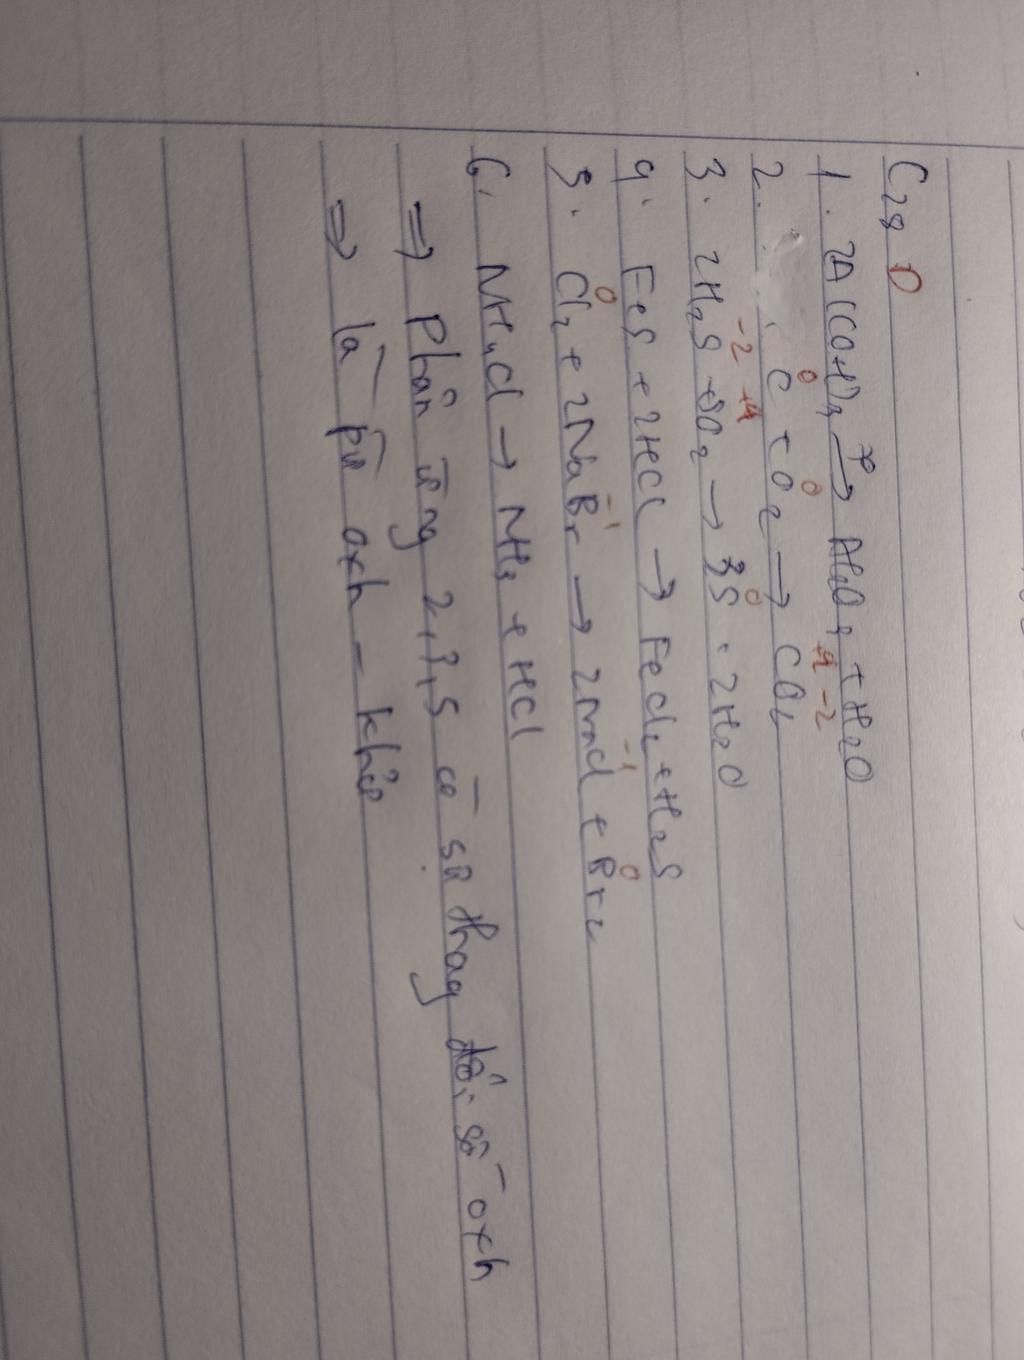 C28 D
1. 2Al(OH)3 →t° Al2O3 + H2O
2. C + O2 → CO2
0 0 +4 -2
3. 2H2S + SO2 → 3S + 2H2O
-2 +4 0
4. FeS + 2HCl → FeCl2 + H2S
5. Cl2 + 2NaBr → 2NaCl + Br2
0 -1 -1 0
6. NH4Cl → NH3 + HCl
=> Phản ứng 2,3,5 có sự thay đổi số oxh
=> là pứ oxh - khử